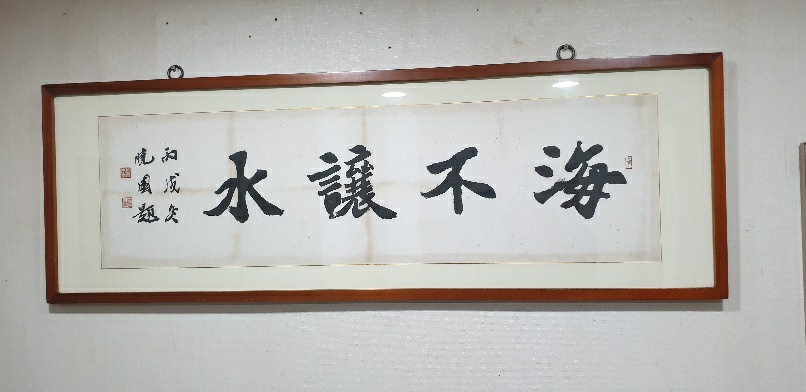 海不讓水
丙戌冬
曉園題